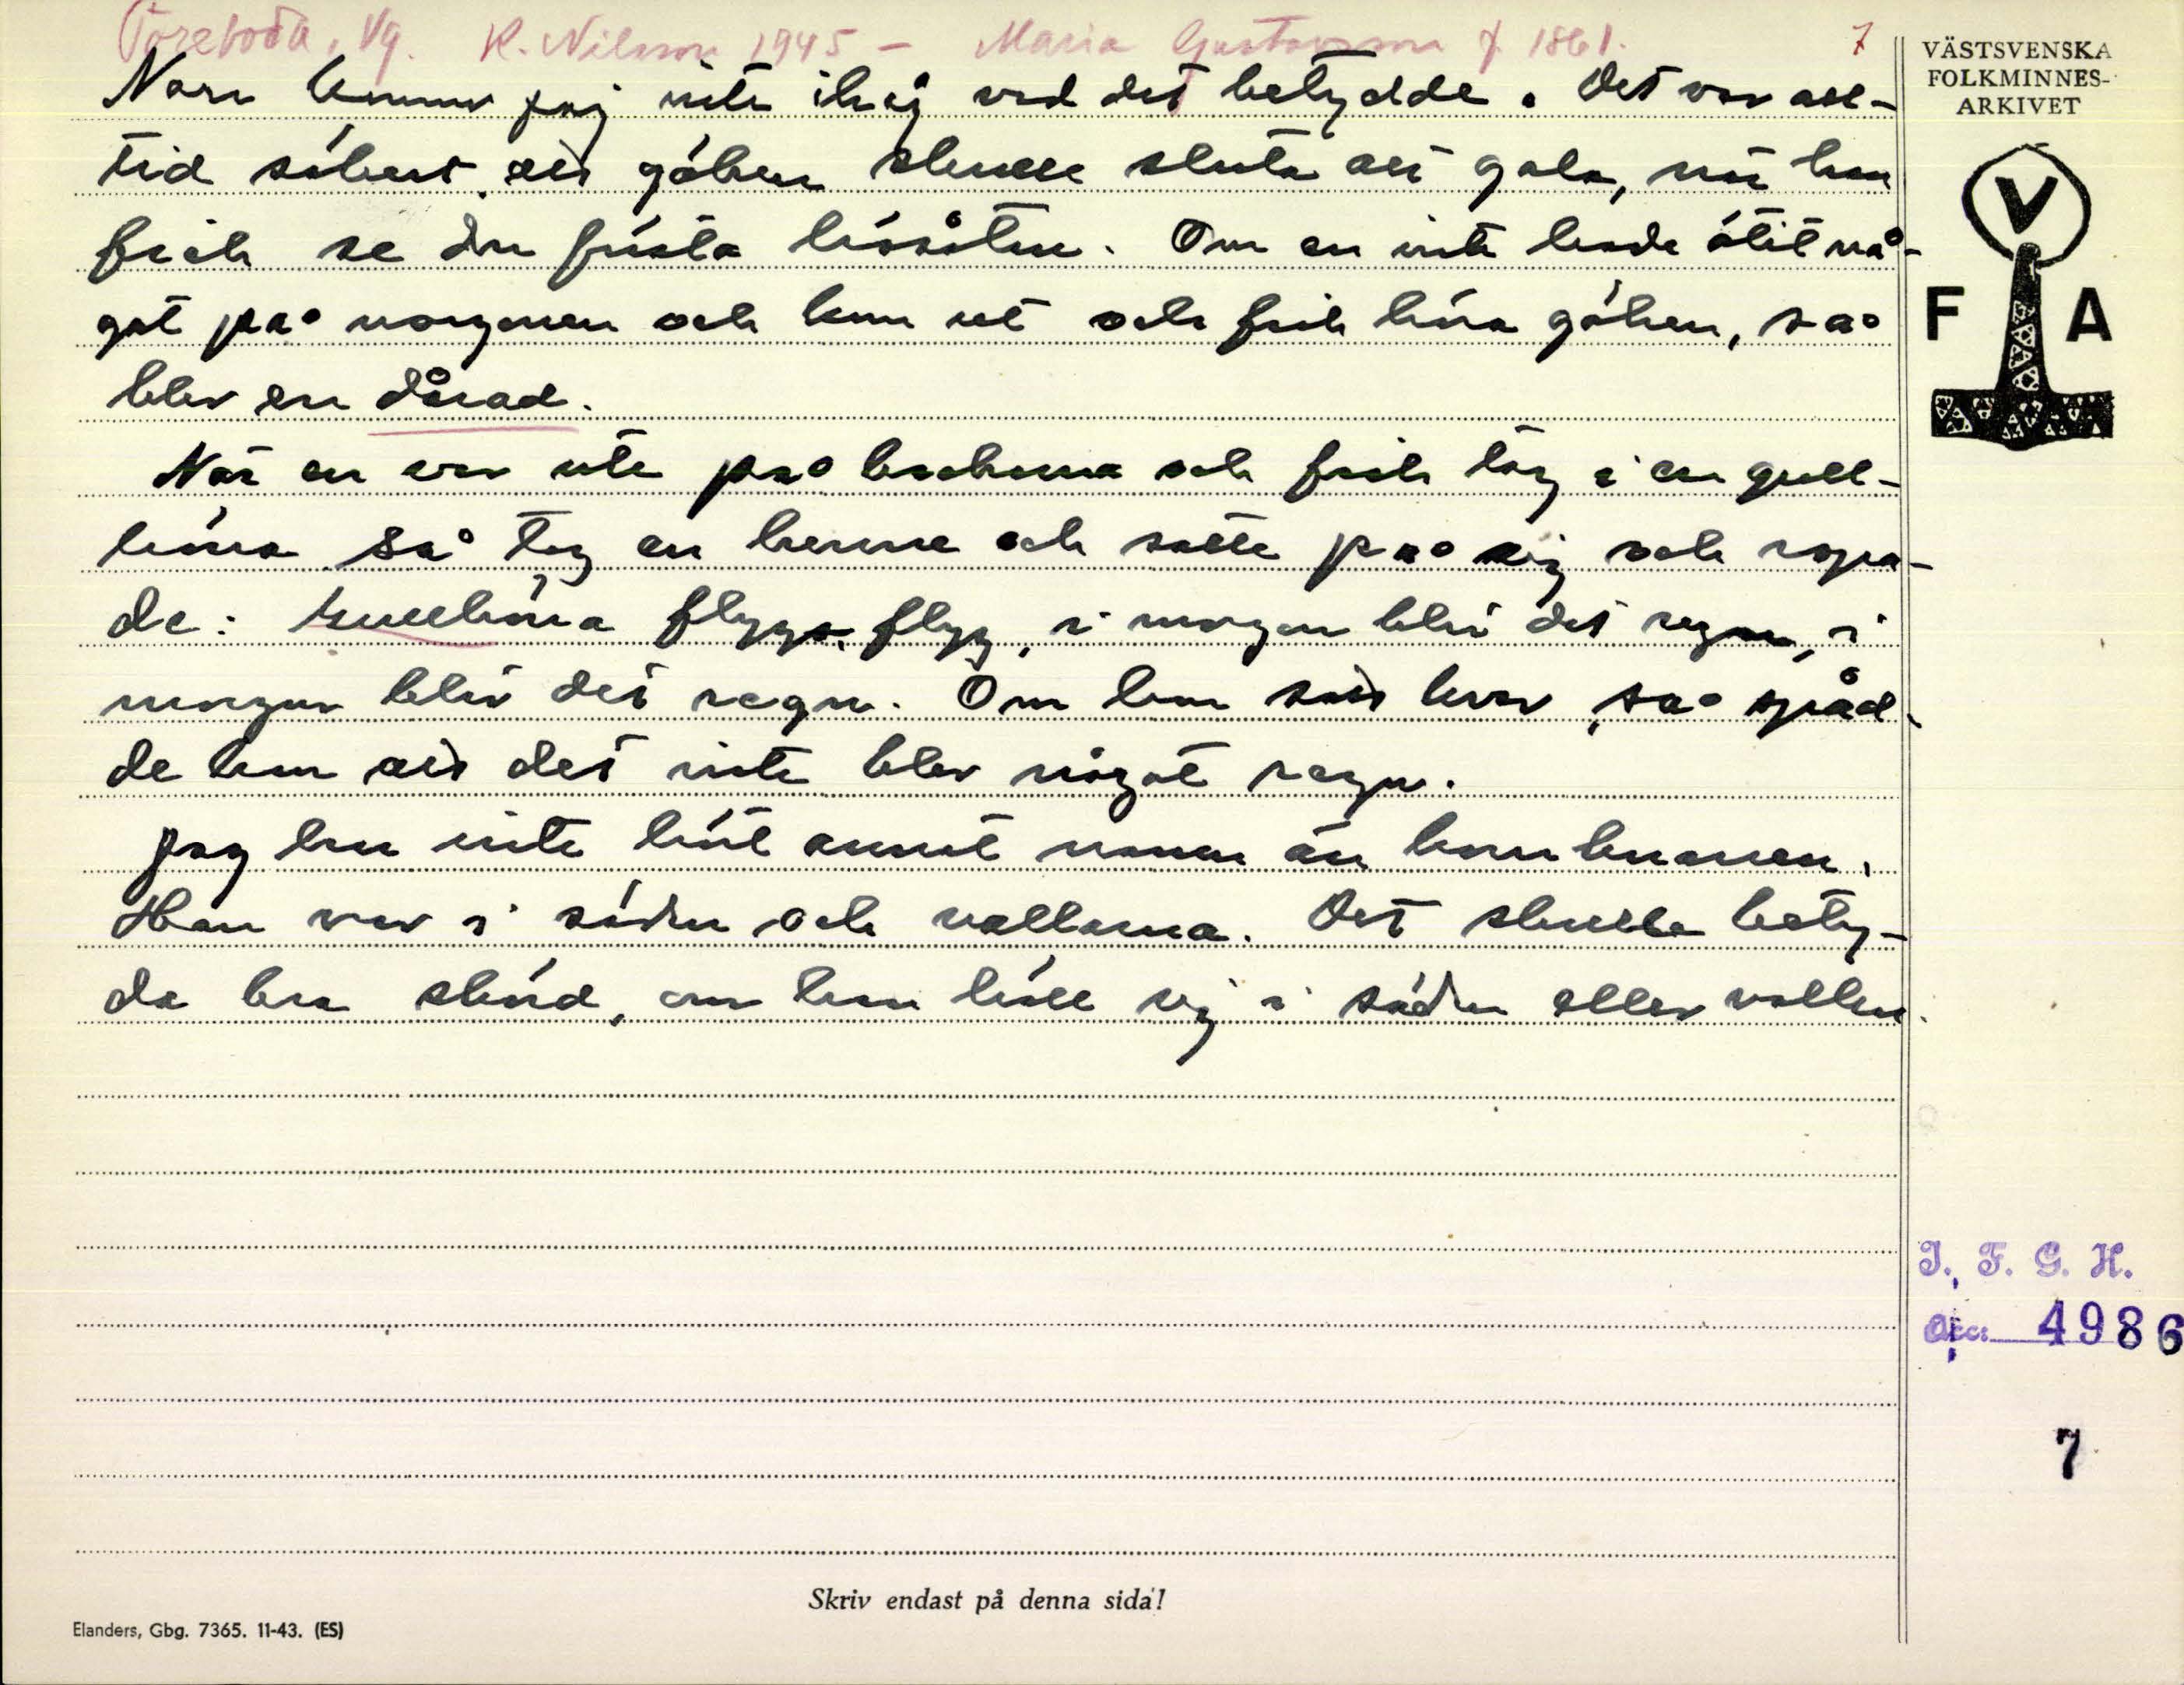 Töreboda, Vg. K. Nilsson 1945 – Maria Gustavsson f. 1861. 7
Norr kommer jag inte ihåg vad det betydde. Det var all-
tid säkert att göken skulle sluta att gala, när han
fick se den första hösåten. Om en inte hade ätit nå-
got på morgonen och kom ut och fick höra göken, så
blev en dårad.
När en var ute på backarna och fick tag i en gull-
höna så tog en henne och satte på sig och ropa-
de: Gullhöna flyg, flyg, i morgon blir det regn, i
morgon blir det regn. Om hon satt kvar, så spåd-
de hon att det inte blev något regn.
Jag har inte hört annat namn än kornknarren.
Han var i säden och vallarna. Det skulle bety-
da bra skörd, om han höll sig i säden eller vallen.
VÄSTSVENSKA
FOLKMINNES-
ARKIVET
V
F A
I. F. G. H.
Acc. 4986
7
Skriv endast på denna sida!
Elanders, Gbg. 7365. 11-43. (ES)